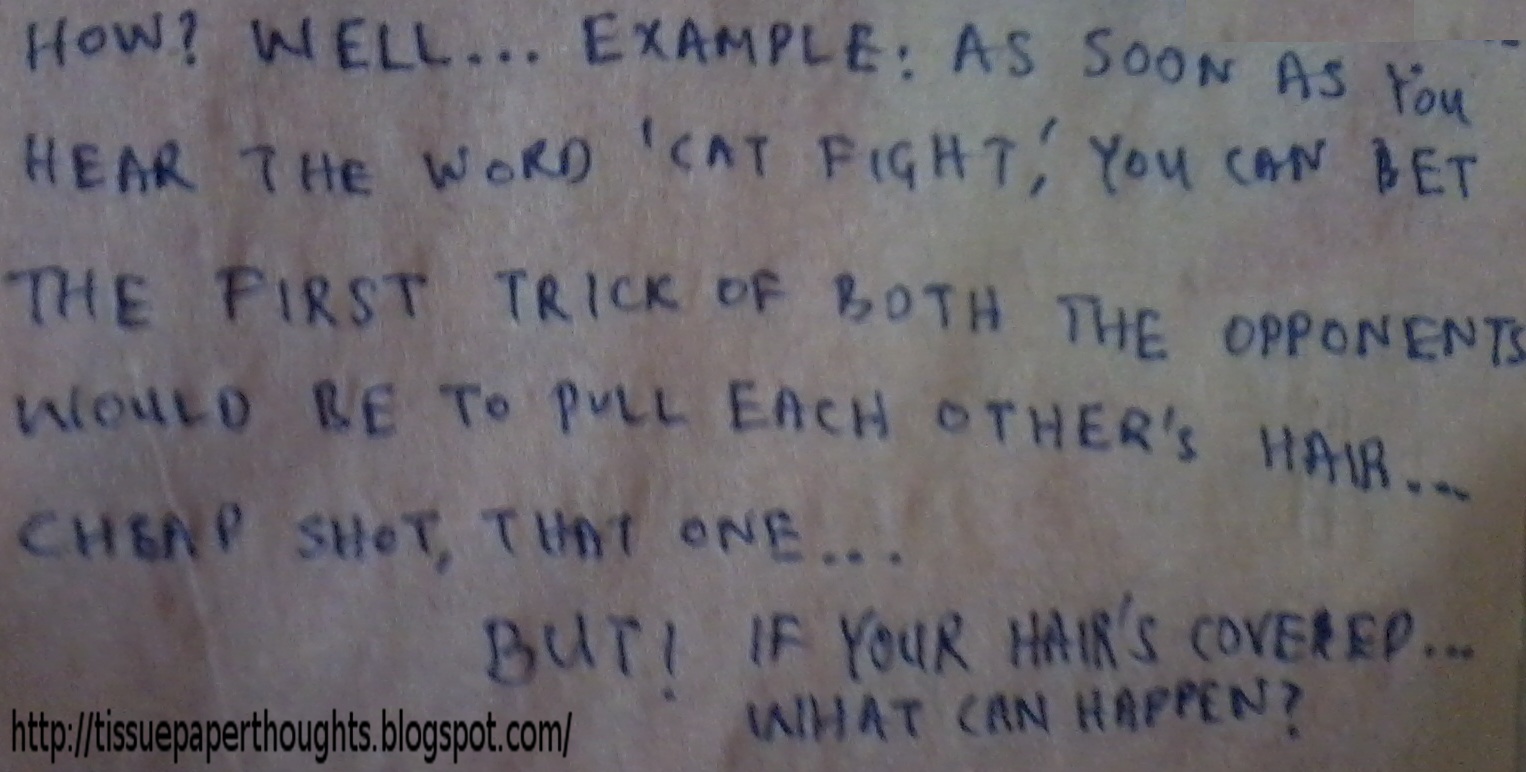 HOW? WELL... EXAMPLE: AS SOON AS YOU
HEAR THE WORD 'CAT FIGHT,' YOU CAN BET
THE FIRST TRICK OF BOTH THE OPPONENTS
WOULD BE TO PULL EACH OTHER'S HAIR...
CHEAP SHOT, THAT ONE...
BUT! IF YOUR HAIR'S COVERED...
WHAT CAN HAPPEN?
http://tissuepaperthoughts.blogspot.com/